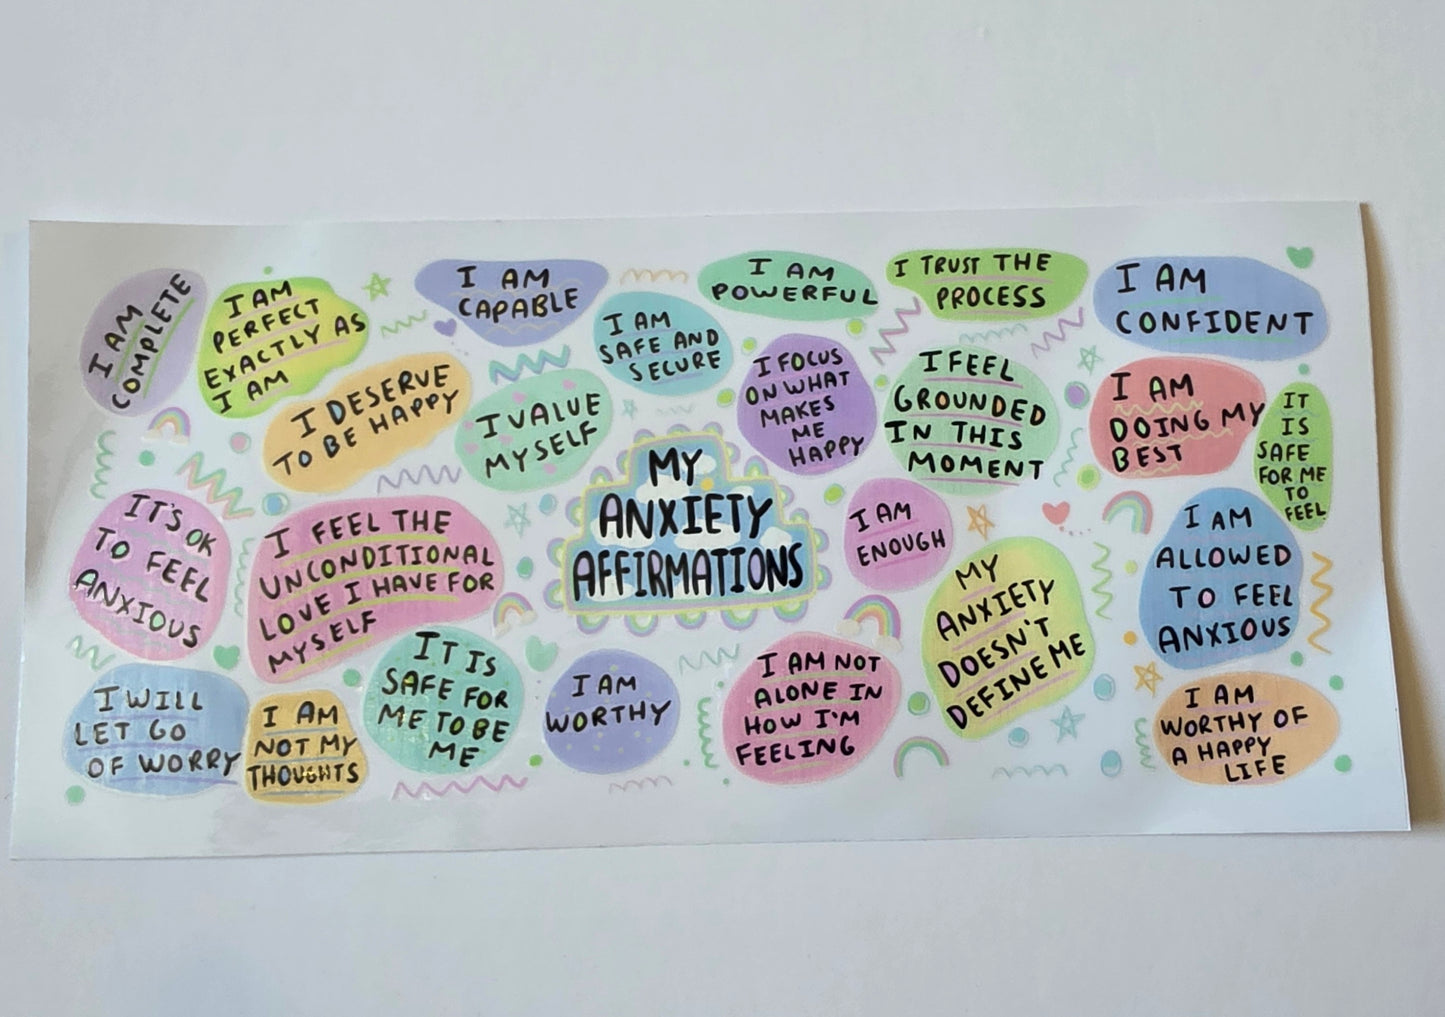 I AM
COMPLETE
I AM
PERFECT
EXACTLY AS
I AM
I AM
CAPABLE
I AM
SAFE AND
SECURE
I AM
POWERFUL
I TRUST THE
PROCESS
I AM
CONFIDENT
I DESERVE
TO BE HAPPY
I VALUE
MYSELF
I FOCUS
ON WHAT
MAKES
ME
HAPPY
I FEEL
GROUNDED
IN THIS
MOMENT
I AM
DOING MY
BEST
IT
IS
SAFE
FOR ME
TO
FEEL
MY
ANXIETY
AFFIRMATIONS
IT'S OK
TO FEEL
ANXIOUS
I FEEL THE
UNCONDITIONAL
LOVE I HAVE FOR
MYSELF
I AM
ENOUGH
MY
ANXIETY
DOESN'T
DEFINE ME
I AM
ALLOWED
TO FEEL
ANXIOUS
I WILL
LET GO
OF WORRY
I AM
NOT MY
THOUGHTS
IT IS
SAFE FOR
ME TO BE
ME
I AM
WORTHY
I AM NOT
ALONE IN
HOW I'M
FEELING
I AM
WORTHY OF
A HAPPY
LIFE